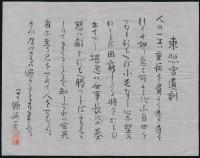 東照宮遺訓
人の一生は重荷を負て遠き道を
行くが如し急ぐべからず不自由を
常と思へば不足なし心に望
おこらば困窮したる時を思ひ
出すべし堪忍は無事長久の基
怒は敵と思へ勝事ばかり
知りてまくる事を知らざれば害其
身に至る己を責めて人をせむるな
及ばざるは過ぎたるよりまされり